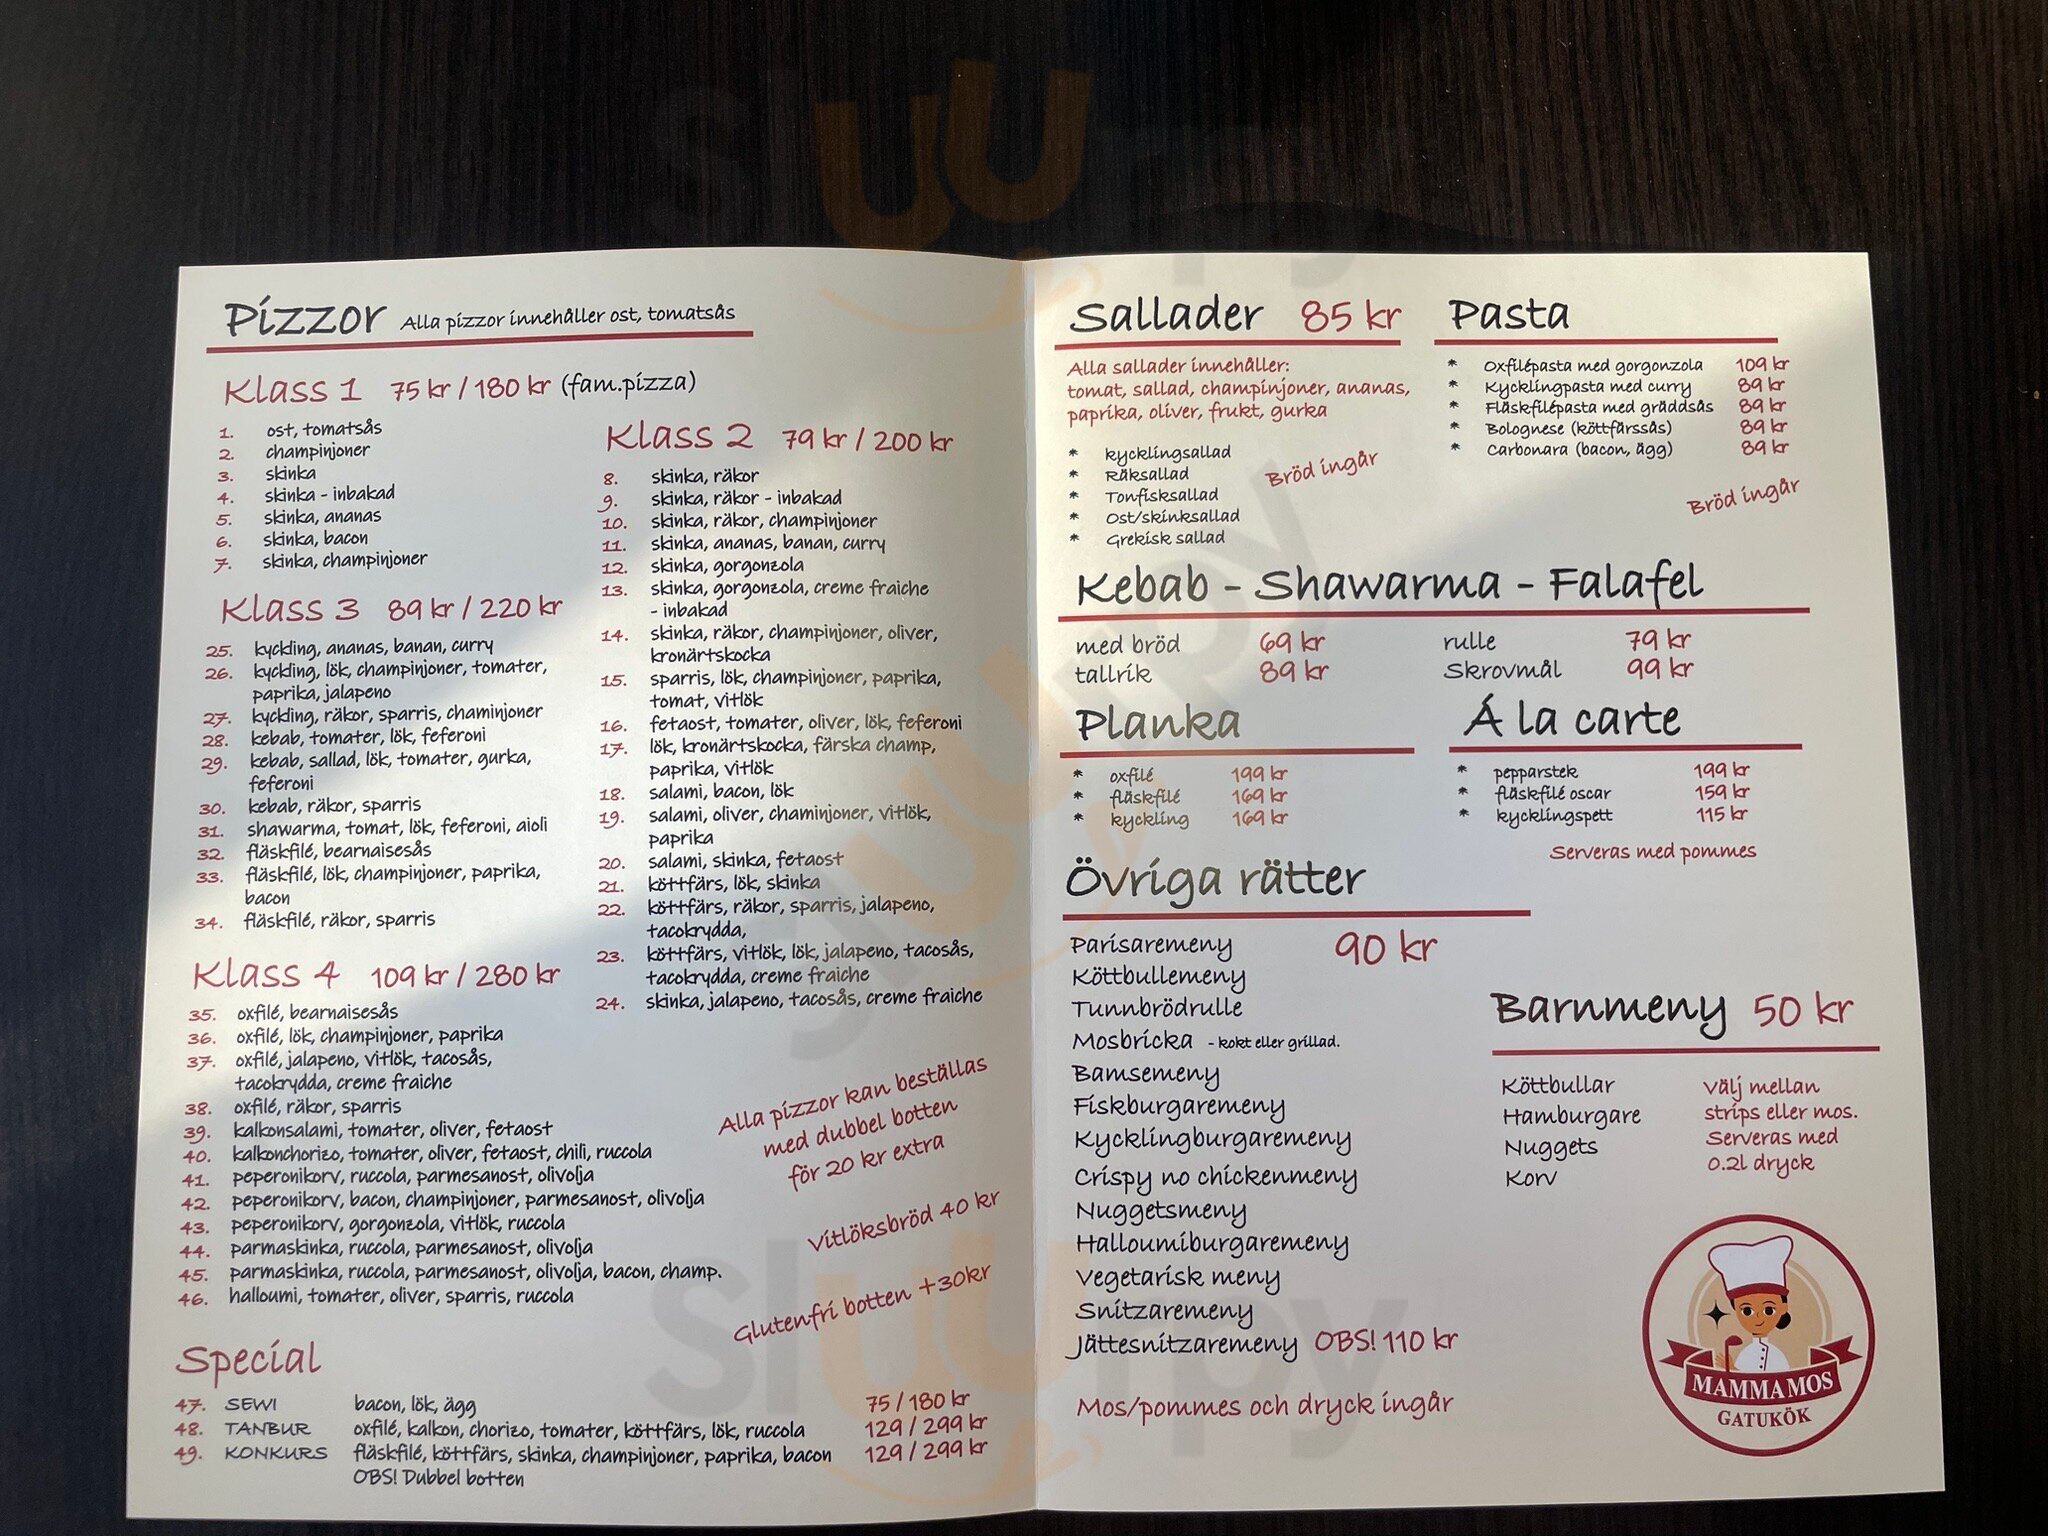 Pizzor Alla pizzor innehåller ost, tomatsås
Klass 1 75 kr / 180 kr (fam.pizza)
1. ost, tomatsås
2. champinjoner
3. skinka
4. skinka - inbakad
5. skinka, ananas
6. skinka, bacon
7. skinka, champinjoner
Klass 2 79 kr / 200 kr
8. skinka, räkor
9. skinka, räkor - inbakad
10. skinka, räkor, champinjoner
11. skinka, ananas, banan, curry
12. skinka, gorgonzola
13. skinka, gorgonzola, creme fraiche
- inbakad
14. skinka, räkor, champinjoner, oliver,
kronärtskocka
15. sparris, lök, champinjoner, paprika,
tomat, vitlök
16. fetaost, tomater, oliver, lök, feferoni
17. lök, kronärtskocka, färska champ,
paprika, vitlök
18. salami, bacon, lök
19. salami, oliver, chaminjoner, vitlök,
paprika
20. salami, skinka, fetaost
21. köttfärs, lök, skinka
22. köttfärs, räkor, sparris, jalapeno,
tacokrydda,
23. köttfärs, vitlök, lök, jalapeno, tacosås,
tacokrydda, creme fraiche
24. skinka, jalapeno, tacosås, creme fraiche
Klass 3 89 kr / 220 kr
25. kyckling, ananas, banan, curry
26. kyckling, lök, champinjoner, tomater,
paprika, jalapeno
27. kyckling, räkor, sparris, chaminjoner
28. kebab, tomater, lök, feferoni
29. kebab, sallad, lök, tomater, gurka,
feferoni
30. kebab, räkor, sparris
31. shawarma, tomat, lök, feferoni, aioli
32. fläskfilé, bearnaisesås
33. fläskfilé, lök, champinjoner, paprika,
bacon
34. fläskfilé, räkor, sparris
Klass 4 109 kr / 280 kr
35. oxfilé, bearnaisesås
36. oxfilé, lök, champinjoner, paprika
37. oxfilé, jalapeno, vitlök, tacosås,
tacokrydda, creme fraiche
38. oxfilé, räkor, sparris
39. kalkonsalami, tomater, oliver, fetaost
40. kalkonchorizo, tomater, oliver, fetaost, chili, ruccola
41. peperonikorv, ruccola, parmesanost, olivolja
42. peperonikorv, bacon, champinjoner, parmesanost, olivolja
43. peperonikorv, gorgonzola, vitlök, ruccola
44. parmaskinka, ruccola, parmesanost, olivolja
45. parmaskinka, ruccola, parmesanost, olivolja, bacon, champ.
46. halloumi, tomater, oliver, sparris, ruccola
Alla pizzor kan beställas
med dubbel botten
för 20 kr extra
Vitlöksbröd 40 kr
Glutenfri botten +30kr
Special
47. SEWI bacon, lök, ägg 75 / 180 kr
48. TANBUR oxfilé, kalkon, chorizo, tomater, köttfärs, lök, ruccola 129 / 299 kr
49. KONKURS fläskfilé, köttfärs, skinka, champinjoner, paprika, bacon 129 / 299 kr
OBS! Dubbel botten
Sallader 85 kr
Alla sallader innehåller:
tomat, sallad, champinjoner, ananas,
paprika, oliver, frukt, gurka
* kycklingsallad
* Räksallad
* Tonfisksallad
* Ost/skinksallad
* Grekisk sallad
Bröd ingår
Pasta
* Oxfilépasta med gorgonzola 109 kr
* Kycklingpasta med curry 89 kr
* Fläskfilépasta med gräddsås 89 kr
* Bolognese (köttfärssås) 89 kr
* Carbonara (bacon, ägg) 89 kr
Bröd ingår
Kebab - Shawarma - Falafel
med bröd 69 kr rulle 79 kr
tallrik 89 kr Skrovmål 99 kr
Planka
* oxfilé 199 kr
* fläskfilé 169 kr
* kyckling 169 kr
Á la carte
* pepparstek 199 kr
* fläskfilé oscar 159 kr
* kycklingspett 115 kr
Serveras med pommes
Övriga rätter
90 kr
Parisaremeny
Köttbullemeny
Tunnbrödrulle
Mosbricka - kokt eller grillad.
Bamsemeny
Fiskburgaremeny
Kycklingburgaremeny
Crispy no chickenmeny
Nuggetsmeny
Halloumiburgaremeny
Vegetarisk meny
Snitzaremeny
Jättesnitzaremeny OBS! 110 kr
Mos/pommes och dryck ingår
Barnmeny 50 kr
Köttbullar
Hamburgare
Nuggets
Korv
Välj mellan
strips eller mos.
Serveras med
0.2l dryck
MAMMA MOS
GATUKÖK
sluurpy
sluurpy
sluurpy